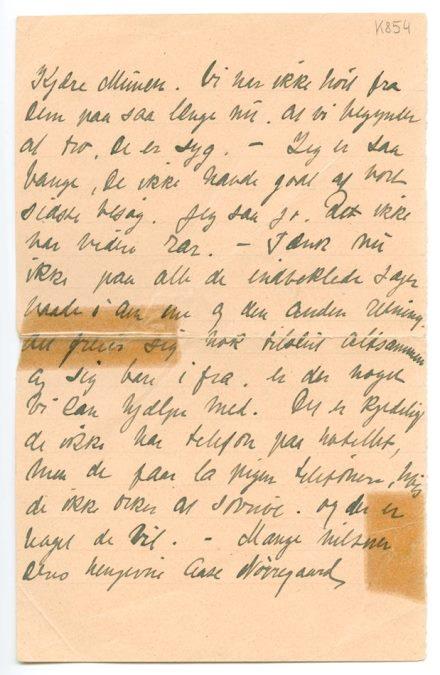 K854
Kjære Munch. Vi har ikke hört fra
Dem paa saa længe nu. at vi begynder
at tro, De er syg. – Jeg er saa
bange, De ikke havde godt af vort
sidste besøg. Jeg saa jo. Det ikke
har videre rar. – Tænk nu
ikke paa alle de indviklede sager
baade i den ene og den anden retning.
det greier sig nok tilslut altsammen
og sig bare i fra. er der noget
vi kan hjælpe med. Det er kjedelig
de ikke har telefon paa hotellet,
men de faar la pigen telefonere, hvis
de ikke orker at skrive. og der er
noget de vil. – Mange hilsner
Deres hengivne Aase Nørregaard